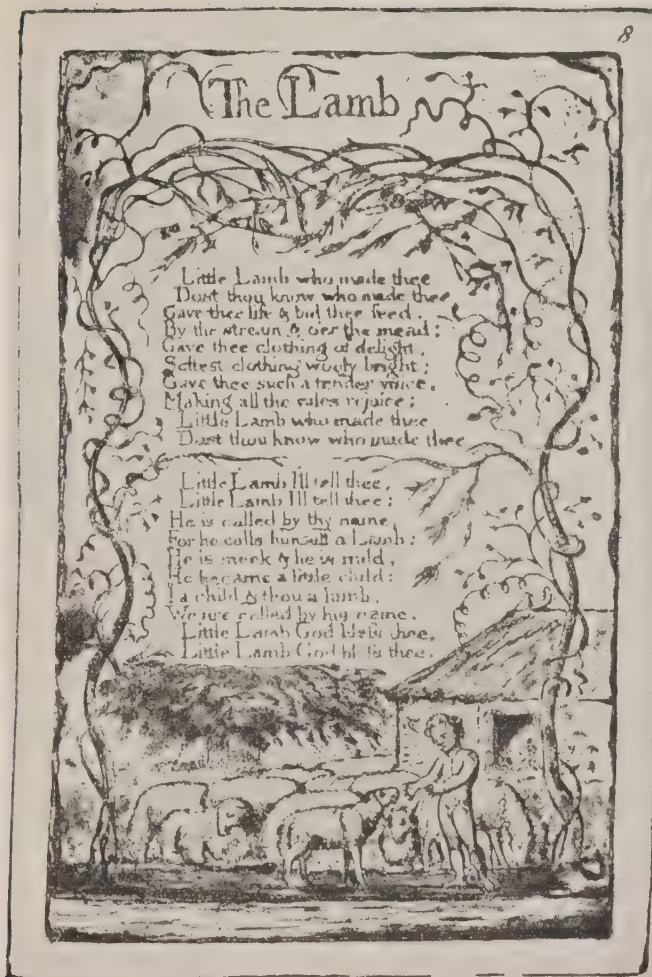 8
The Lamb
Little Lamb who made thee
Dost thou know who made thee
Gave thee life & bid thee feed.
By the stream & o'er the mead;
Gave thee clothing of delight,
Softest clothing wooly bright;
Gave thee such a tender voice,
Making all the vales rejoice:
Little Lamb who made thee
Dost thou know who made thee
Little Lamb I'll tell thee,
Little Lamb I'll tell thee;
He is called by thy name,
For he calls himself a Lamb:
He is meek & he is mild,
He became a little child:
I a child & thou a lamb,
We are called by his name.
Little Lamb God bless thee,
Little Lamb God bless thee.